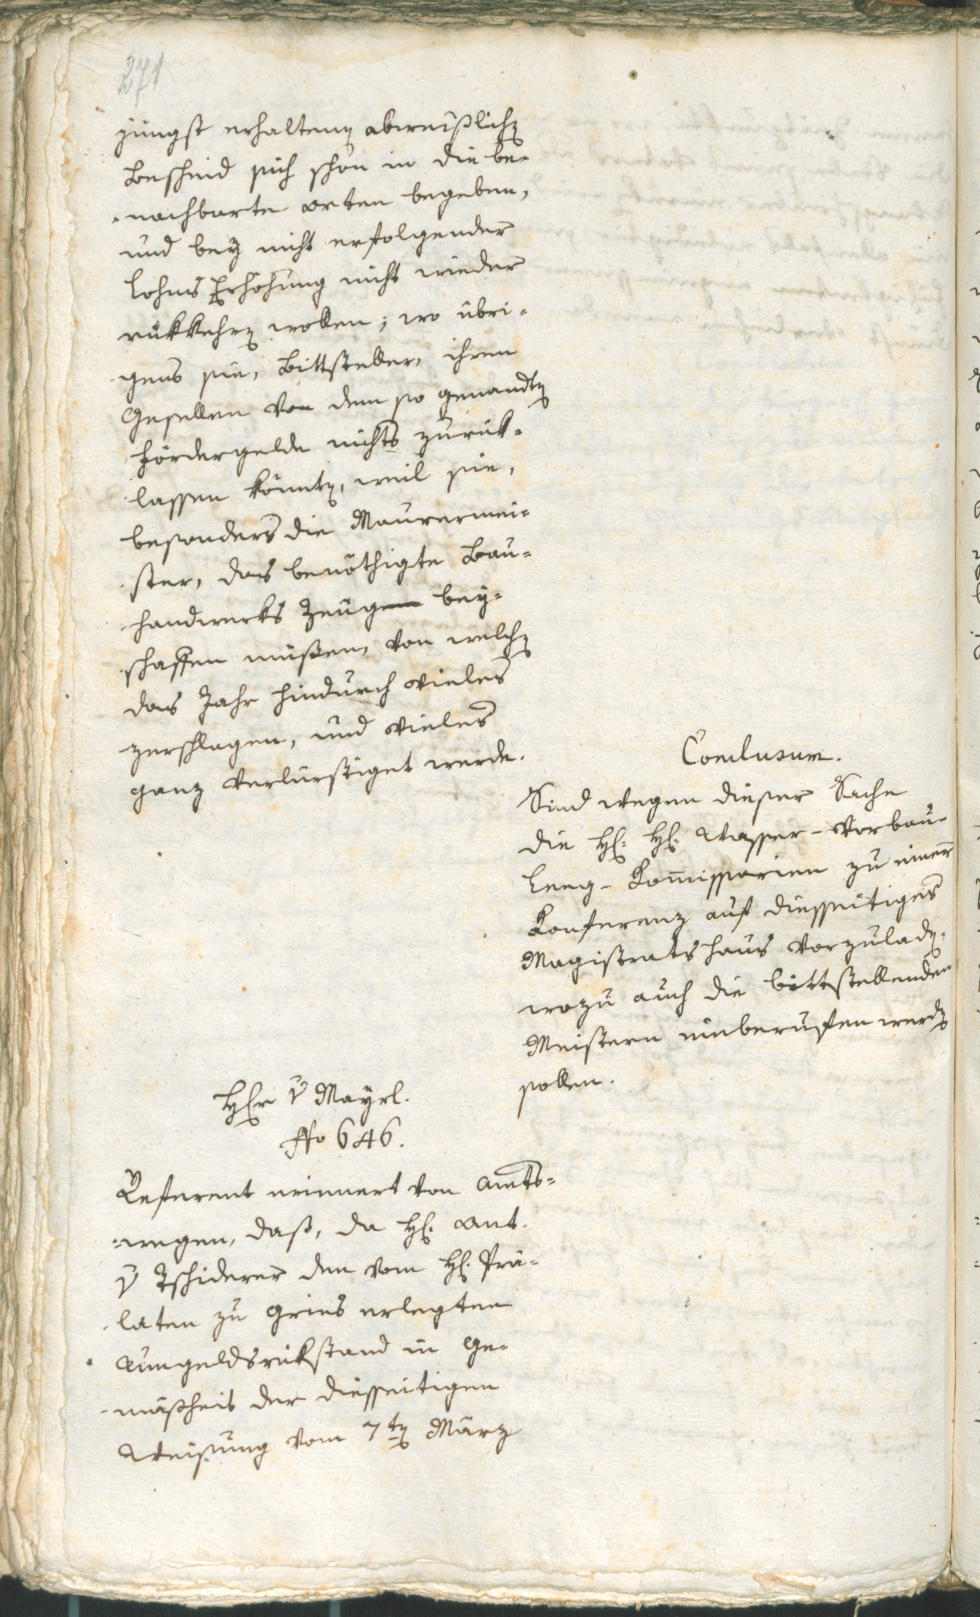 271
jüngst erhaltenen abweißlichen
Bescheid sich schon in die be-
nachbarte Orten begeben,
und bey nicht erfolgender
Lohns Erhöhung nicht wieder
rükkehren wollen; wo übri-
gens sie, Bittsteller, ihren
Gesellen von dem so genandten
Fördergelde nichts zurük-
lassen könnten, weil sie,
besonders die Maurermei-
ster, das benöthigte Bau-
handwerks Zeug bey-
schaffen müßen, von welchen
das Jahr hindurch vieles
zerschlagen, und vieles
ganz verlürstiget werde.
Conclusum.
Sind wegen dieser Sache
die H. H. Wasser-Vorbau-
Leeg-Kommissarien zu einer
Konferenz auf diesseitiges
Magistratshaus vorzuladen,
wozu auch die bittstellenden
Meistern einberuffen werden
sollen.
Herr v Mayrl.
No 646.
Referent erinnert von Amts-
wegen, daß, da H. Ant.
v Tschiderer den vom H. Prä-
laten zu Gries erlegten
Umgeldsrükstand in Ge-
mäßheit der diesseitigen
Weisung vom 7ten März